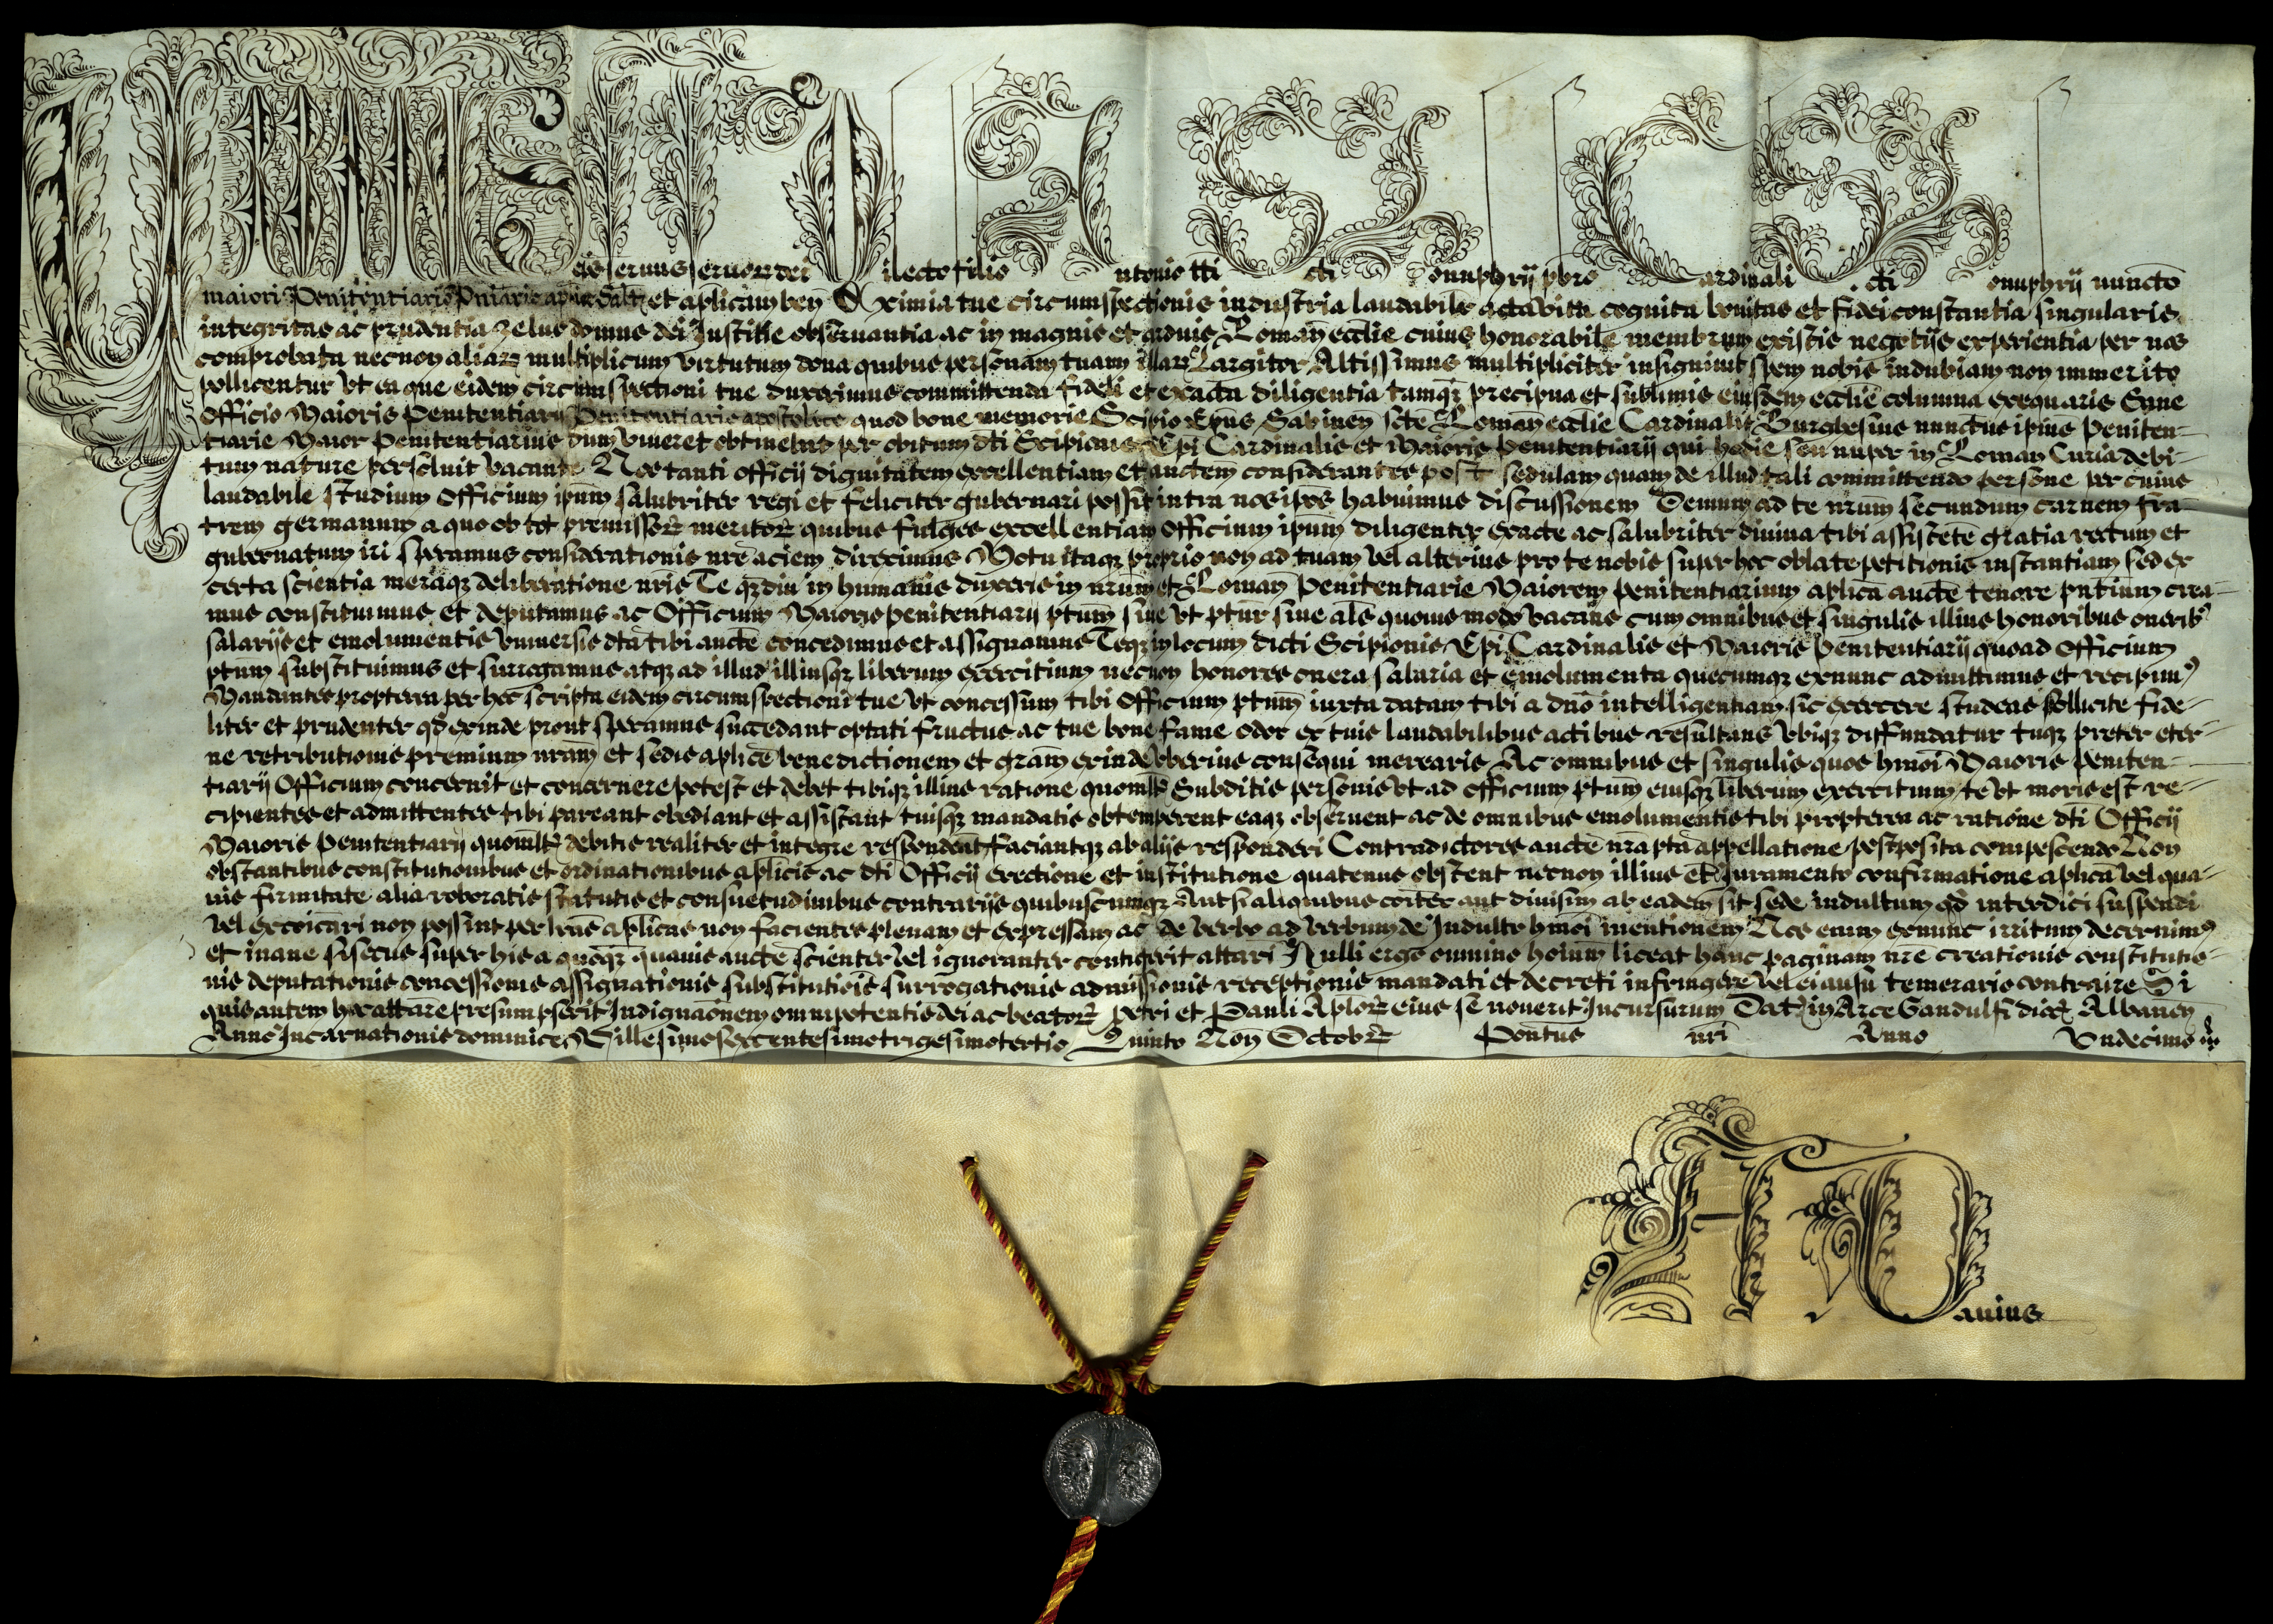 URBANUS Ep̄us seruus seruorꝝ dei Dilecto filio Antonio tti Sc̄ti Honuphrij p̄bro Cardinali Sc̄ti Honuphrij nunc̄to
maiori Penitentiario et aplicam ben̄ Eximia tue circumspectionis industria laudabilis acta vita cognita bonitas et fidei constantia singularis
integritas ac prudentia zelus domus dei Justitie obseruantia ac in magnis et arduis Roman̄ eccłie cuius honorabile membrum existis negotijs experientia per nos
comprobata necnon aliarꝝ multiplicum virtutum dona quibus personam tuam illarꝝ Largitor Altissimus multipliciter insigniuit spem nobis indubiam non immerito
pollicentur vt ea que eidem circumspectioni tue duxerimus committenda fideli et exacta diligentia tamqꝫ precipua et sublimis eiusdem eccłie columna exequaris Sane
Officio Maioris Penitentiarij Penitentiarie apostolice quod bone memorie Scipio Ep̄us Sabinen̄ scte Roman̄ eccłie Cardinalis Burghesius nunc̄tus ipius Peniten-
tiarie Maior Penitentiarius dum viueret obtinebat per obitum dti Scipionis Ep̄i Cardinalis et Maioris Penitentiarij qui hodie seu nuper in Roman̄ Curia debi-
tum nature persoluit vacante Nos tanti officij dignitatem excellentiam et auctem considerantes post sedulam quam de illud tali committendo persone per cuius
laudabile studium Officium ipum salubriter regi et feliciter gubernari possit intra nos ipos habuimus discussionem Demum ad te nrum secundum carnem fra-
trem germanum a quo ob tot premissorꝝ meritorꝝ quibus fulges excellentiam Officium ipum diligenter exacte ac salubriter diuina tibi assistente gratia rectum et
gubernatum iri speramus considerationis nre aciem direximus Motu itaqꝫ proprio non ad tuam vel alterius pro te nobis super hoc oblate petitionis instantiam sed ex
certa scientia meraqꝫ deliberatione nris Te qꝫdiu in humanis duxeris in nrum et Roman̄ Penitentiarie Maiorem penitentiarium aplica aucte tenore pntium crea-
mus constituimus et deputamus ac Officium Maioris penitentiarij ptum siue vt ptur siue als quouis modo vacans cum omnibus et singulis illius honoribus onerib⁹
salarijs et emolumentis vniuersis dta tibi aucte concedimus et assignamus Teqꝫ in locum dicti Scipionis Ep̄i Cardinalis et Maioris Penitentiarij quoad Officium
ptum substituimus et surrogamus atqꝫ ad illud illiusqꝫ liberum exercitium necnon honores onera salaria et emolumenta quecumqꝫ exnunc admittimus et recipim⁹
Mandantes propterea per hec scripta eidem circumspectioni tue vt concessum tibi Officium ptum iuxta datam tibi a dno intelligentiam sic exercere studeas sollicite fide-
liter et prudenter qd exinde prout speramus succedant optati fructus ac tue bone fame odor ex tuis laudabilibus actibus resultans vbiqꝫ diffundatur tuqꝫ preter eter-
ne retributionis premium nram et sedis aplice benedictionem et gram exinde vberius consequi merearis Ac omnibus et singulis quos hmoi Maioris peniten-
tiarij Officium concernit et concernere potest et debet tibiqꝫ illius ratione quomłt Subditis personis vt ad officium ptum eiusqꝫ liberum exercitium te vt moris est re-
cipientes et admittentes tibi pareant obediant et assistant tuisqꝫ mandatis obtemperent eaqꝫ obseruent ac de omnibus emolumentis tibi propterea ac ratione dti Officij
Maioris Penitentiarij quomłt debitis realiter et integre respondeant faciantqꝫ ab alijs responderi Contradictores aucte nra pta appellatione postposita compescendo Non
obstantibus constitutionibus et ordinationibus aplicis ac dti Officij erectione et institutione quatenus obstent necnon illius et Juramento confirmatione aplica vel qua-
uis firmitate alia roboratis statutis et consuetudinibus contrarijs quibuscumqꝫ Aut si aliquibus coiter aut diuisim ab eadem sit sede indultum qd interdici suspendi
vel excoicari non possint per lras aplicas non facientes plenam et expressam ac de verbo ad verbum de Indulto hmoi mentionem Nos enim exnunc irritum decernim⁹
et inane si secus super his a quoqꝫ quauis aucte scienter vel ignoranter contigerit attari Nulli ergo omnino hoium liceat hanc paginam nre creationis constitutio-
nis deputationis concessionis assignationis substitutiois surrogationis admissionis receptionis mandati et decreti infringere vel ei ausu temerario contraire Si
quis autem hoc attare presumpserit Indignaonem omnipotentis dei ac beatorꝝ Petri et Pauli Aplorꝝ eius se nouerit Incursurum Dat in Arce Gandulfi dioc Albanen̄
Anno Incarnationis dominice Millesimosexcentesimotrigesimotertio Quinto Non̄ Octobrꝭ Pontus nri Anno Vndecimo
Dauius